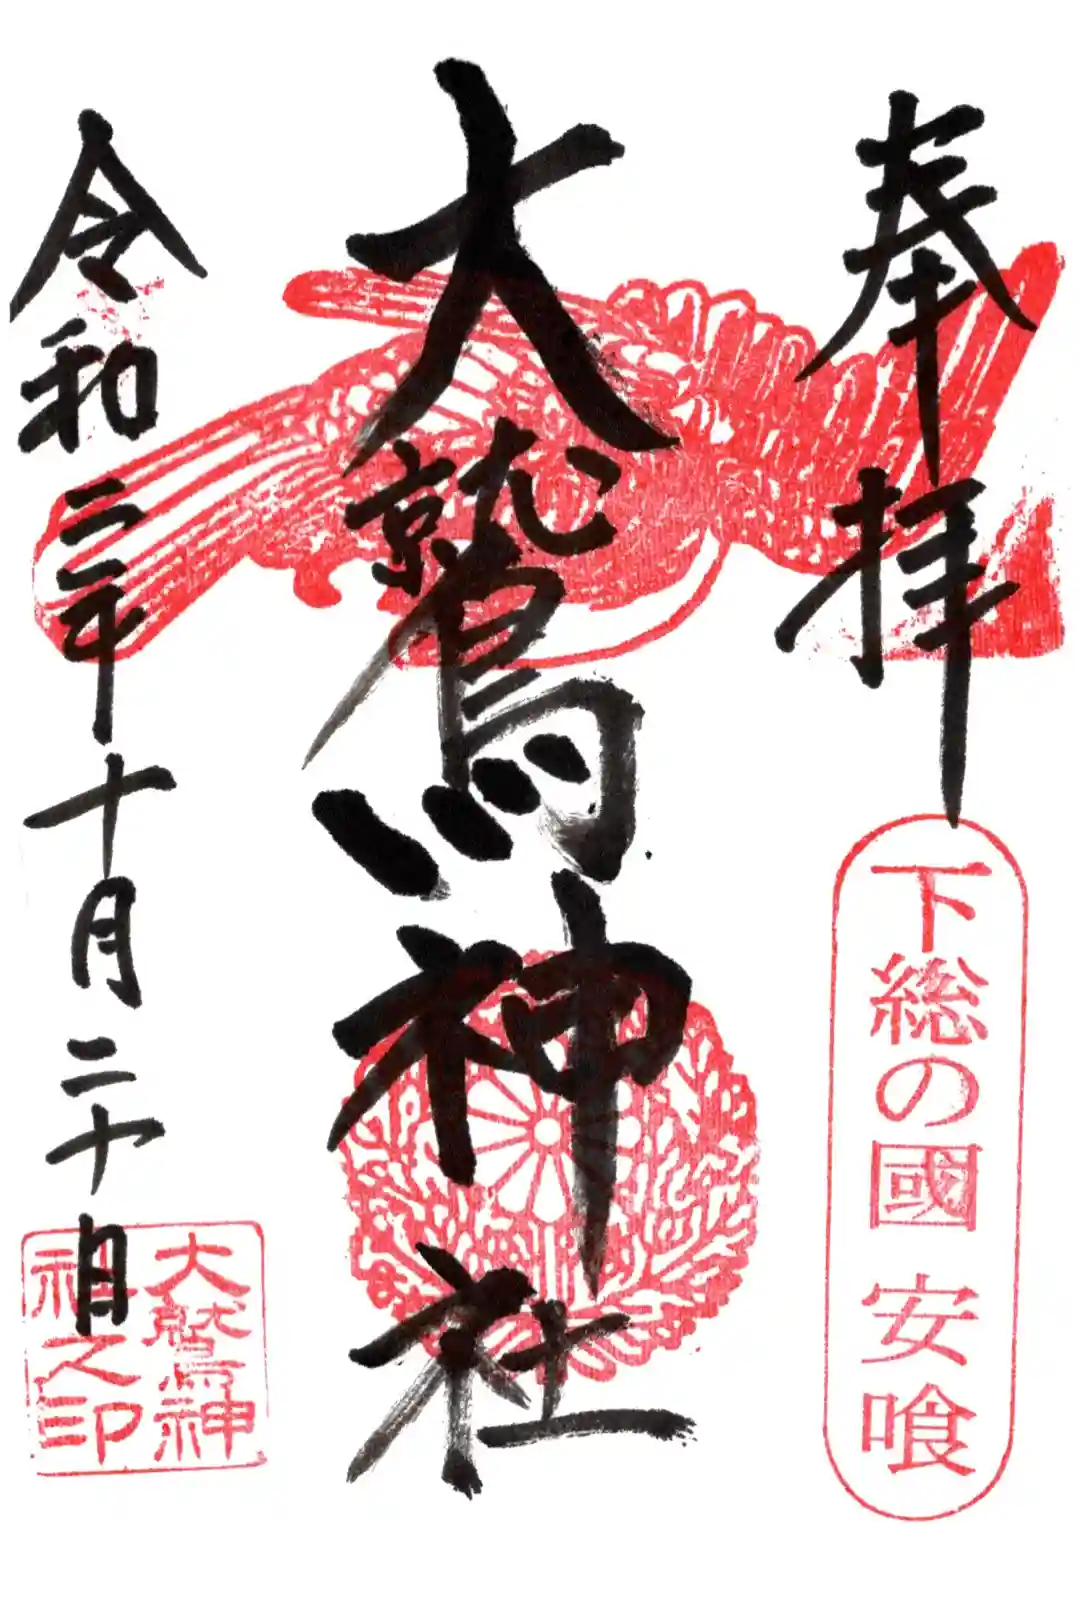 奉拝
下総の國 安喰
大鷲神社
令和二年十月二十日
大鷲神
社之印